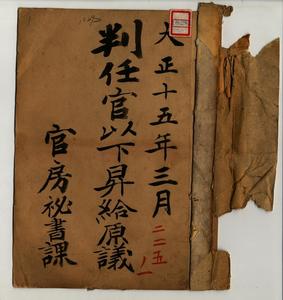 大正十五年三月
判任官以下昇給原議
官房祕書課
二二五
ノ一